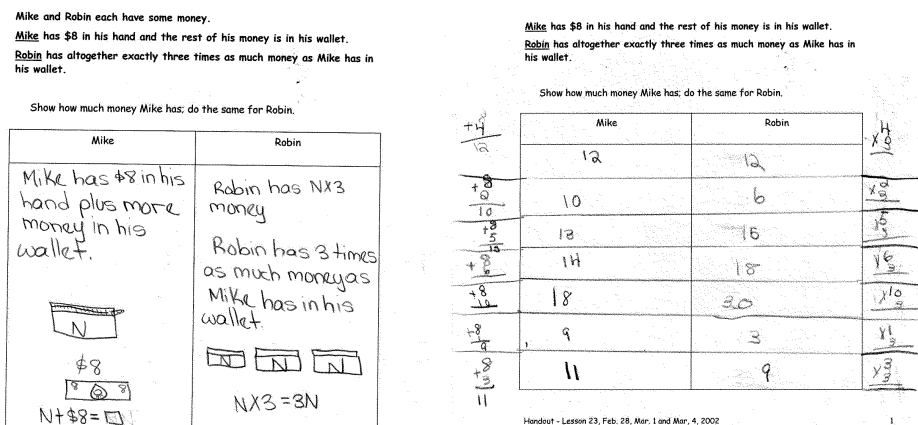 Mike and Robin each have some money.
Mike has $8 in his hand and the rest of his money is in his wallet.
Robin has altogether exactly three times as much money as Mike has in
his wallet.
Show how much money Mike has; do the same for Robin.
Mike
Robin
Mike has $8 in his
hand plus more
money in his
wallet.
N
$8
8 8
N+$8=
Robin has NX3
money
Robin has 3 times
as much money as
Mike has in his
wallet.
N N N
NX3=3N
Mike has $8 in his hand and the rest of his money is in his wallet.
Robin has altogether exactly three times as much money as Mike has in
his wallet.
Show how much money Mike has; do the same for Robin.
Mike Robin
+4
12
12 12
+2
10
10 6
x2
+8
5
13
13 15
+8
14 18
x6
3
+8
18 30
x10
3
+8
9
9 3
x1
3
+8
3
11
11 9
x3
3
Handout - Lesson 23, Feb. 28, Mar. 1 and Mar, 4, 2002
1